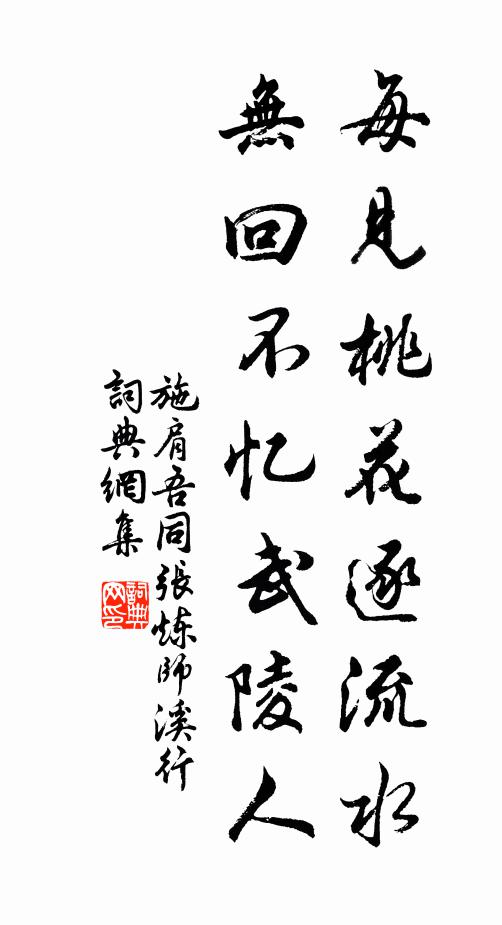 每見桃花逐流水
無回不忆武陵人
施肩吾同張炼師溪行
詞典網集
詞典网印